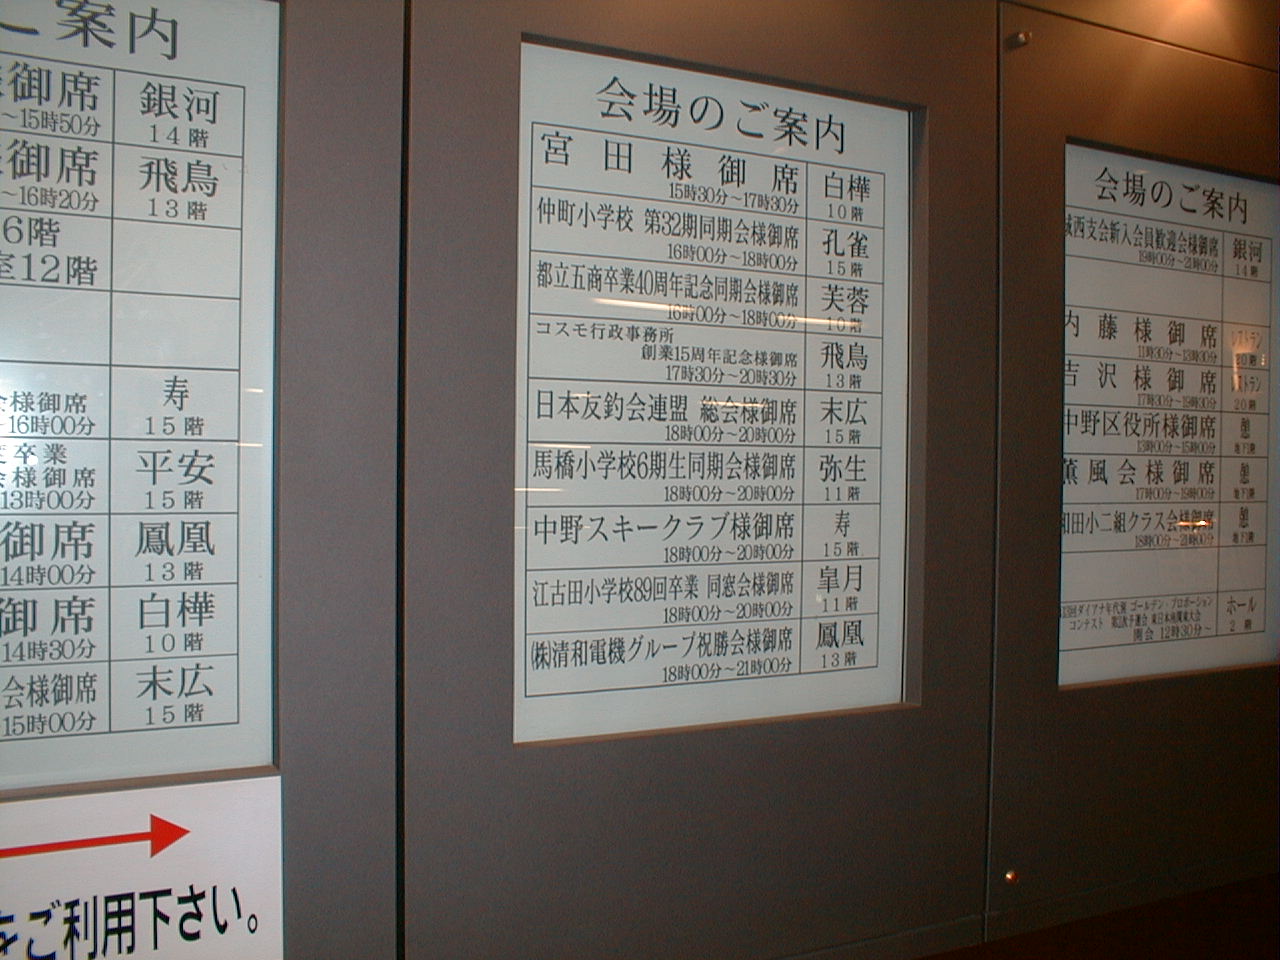 ご案内
御席
～15時50分
銀河
14階
御席
～16時20分
飛鳥
13階
6階
室12階
会様御席
16時00分
寿
15階
卒業
会様御席
13時00分
平安
15階
御席
14時00分
鳳凰
13階
御席
14時30分
白樺
10階
会様御席
15時00分
末広
15階
をご利用下さい。
会場のご案内
宮田様御席
15時30分～17時30分
白樺
10階
仲町小学校 第32期同期会様御席
16時00分～18時00分
孔雀
15階
都立五商卒業40周年記念同期会様御席
16時00分～18時00分
芙蓉
10階
コスモ行政事務所
創業15周年記念様御席
17時30分～20時30分
飛鳥
13階
日本友釣会連盟 総会様御席
18時00分～20時00分
末広
15階
馬橋小学校6期生同期会様御席
18時00分～20時00分
弥生
11階
中野スキークラブ様御席
18時00分～20時00分
寿
15階
江古田小学校89回卒業 同窓会様御席
18時00分～20時00分
皐月
11階
㈱清和電機グループ祝勝会様御席
18時00分～21時00分
鳳凰
13階
会場のご案内
城西支会新入会員歓迎会様御席
19時00分～21時00分
銀河
14階
内藤様御席
11時30分～13時30分
レストラン
20階
吉沢様御席
17時30分～19時30分
レストラン
20階
中野区役所様御席
13時00分～15時00分
憩
地下1階
薫風会様御席
17時00分～19時00分
憩
地下1階
和田小二組クラス会様御席
18時00分～21時00分
憩
地下1階
ダイアナ年代別 ゴールデン・プロポーション
コンテスト 第2次予選会 東日本南関東大会
開会 12時30分～
ホール
2階